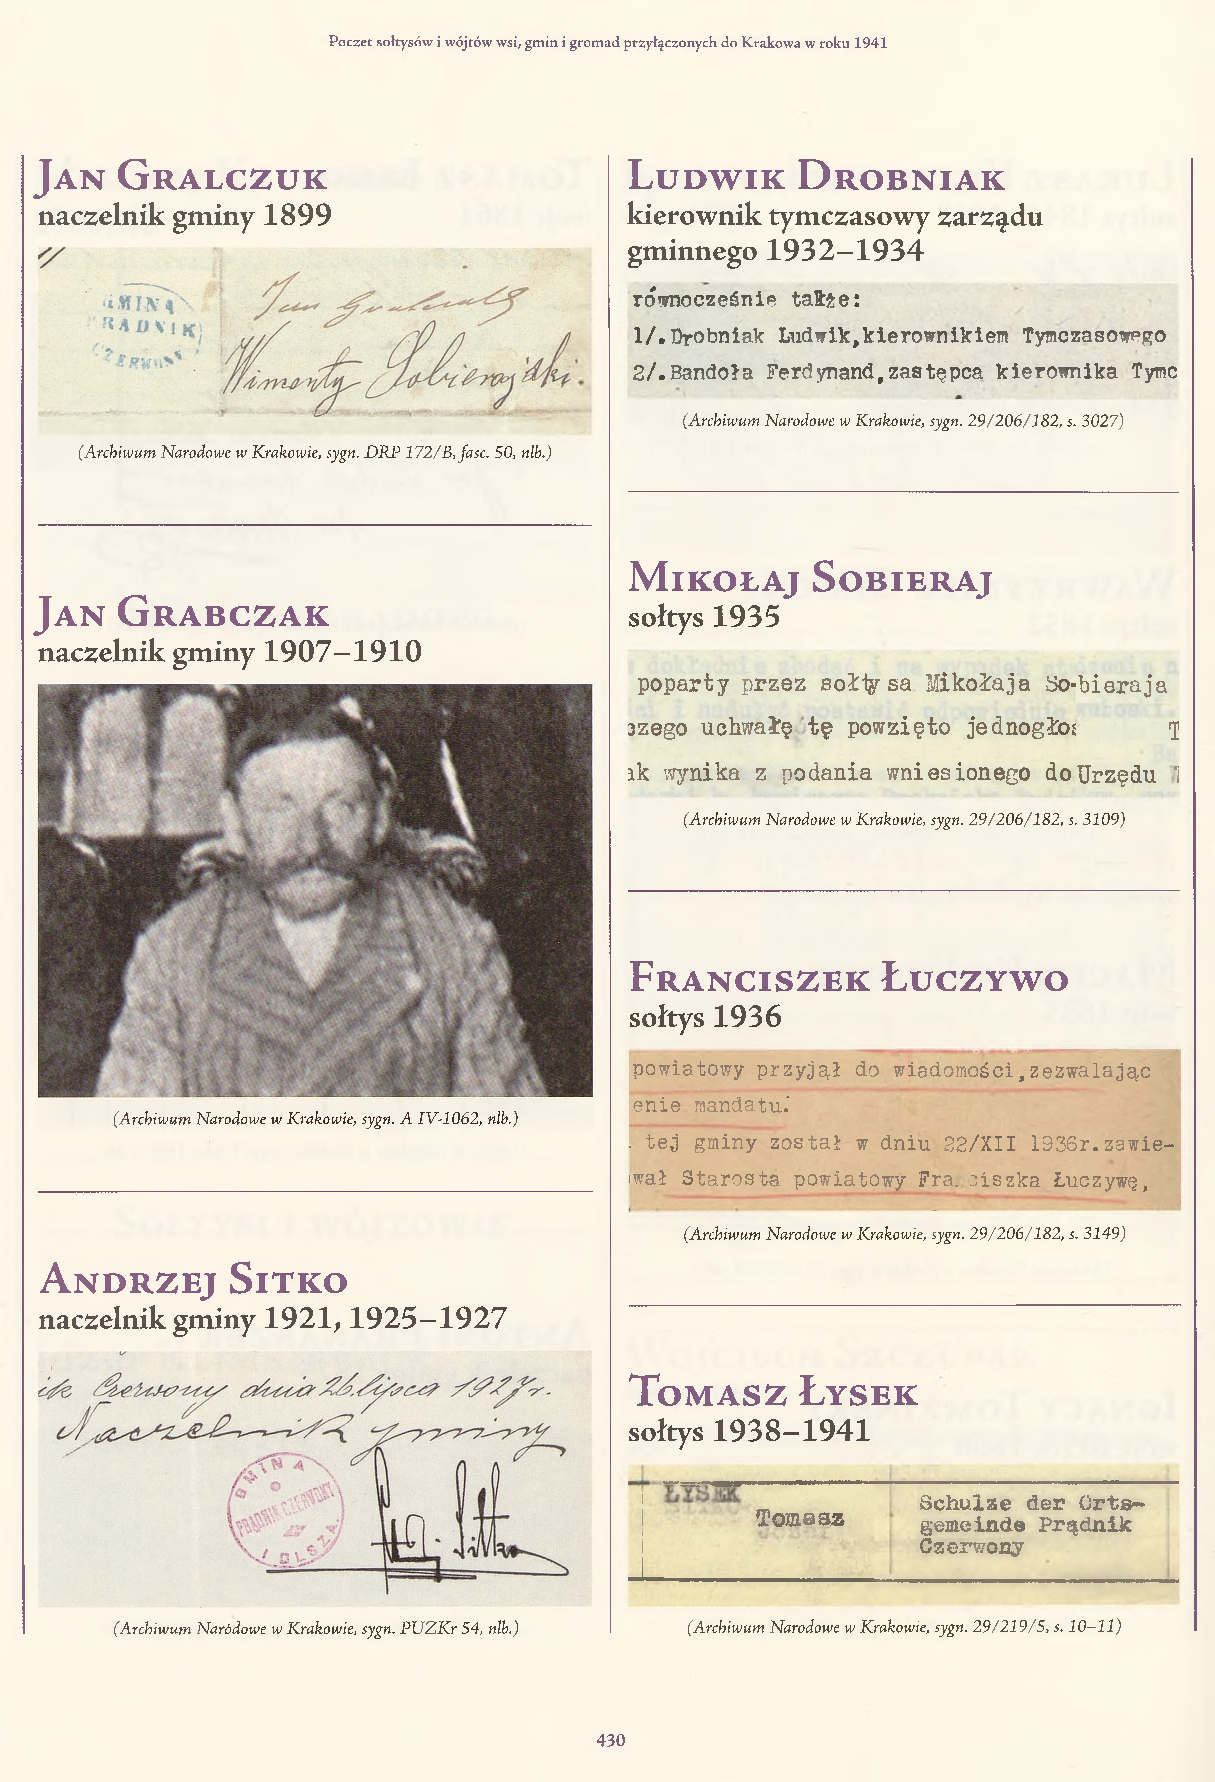 Poczet sołtysów i wójtów wsi, gmin i gromad przyłączonych do Krakowa w roku 1941
Jan Gralczuk
naczelnik gminy 1899
GMINA
PRĄDNIK
CZERWONY
Jan
Wincenty Sobierajski.
(Archiwum Narodowe w Krakowie, sygn. DRP 172/B, fasc. 50, nlb.)
Jan Grabczak
naczelnik gminy 1907–1910
(Archiwum Narodowe w Krakowie, sygn. A IV-1062, nlb.)
Andrzej Sitko
naczelnik gminy 1921, 1925–1927
ik Czerwony dnia 26. lipca 1927 r.
Naczelnik gminy
GMINA
PRĄDNIK CZERWONY
I OLSZA
Sitko
(Archiwum Naródowe w Krakowie, sygn. PUZKr 54, nlb.)
Ludwik Drobniak
kierownik tymczasowy zarządu
gminnego 1932–1934
równocześnie także:
1/.Drobniak Ludwik,kierownikiem Tymczasowego
2/.Bandoła Ferdynand,zastępca kierownika Tymc
(Archiwum Narodowe w Krakowie, sygn. 29/206/182, s. 3027)
Mikołaj Sobieraj
sołtys 1935
poparty przez sołtysa Mikołaja So-bieraja
czego uchwałę tę powzięto jednogłoś
ak wynika z podania wniesionego do Urzędu
(Archiwum Narodowe w Krakowie, sygn. 29/206/182, s. 3109)
Franciszek Łuczywo
sołtys 1936
powiatowy przyjął do wiadomości,zezwalając
enie mandatu.
. tej gminy został w dniu 22/XII 1936r.zawie-
wał Starosta powiatowy Franciszka Łuczywę,
(Archiwum Narodowe w Krakowie, sygn. 29/206/182, s. 3149)
Tomasz Łysek
sołtys 1938–1941
ŁYSEK
Tomasz
Schulze der Orts-
gemeinde Prądnik
Czerwony
(Archiwum Narodowe w Krakowie, sygn. 29/219/5, s. 10–11)
430